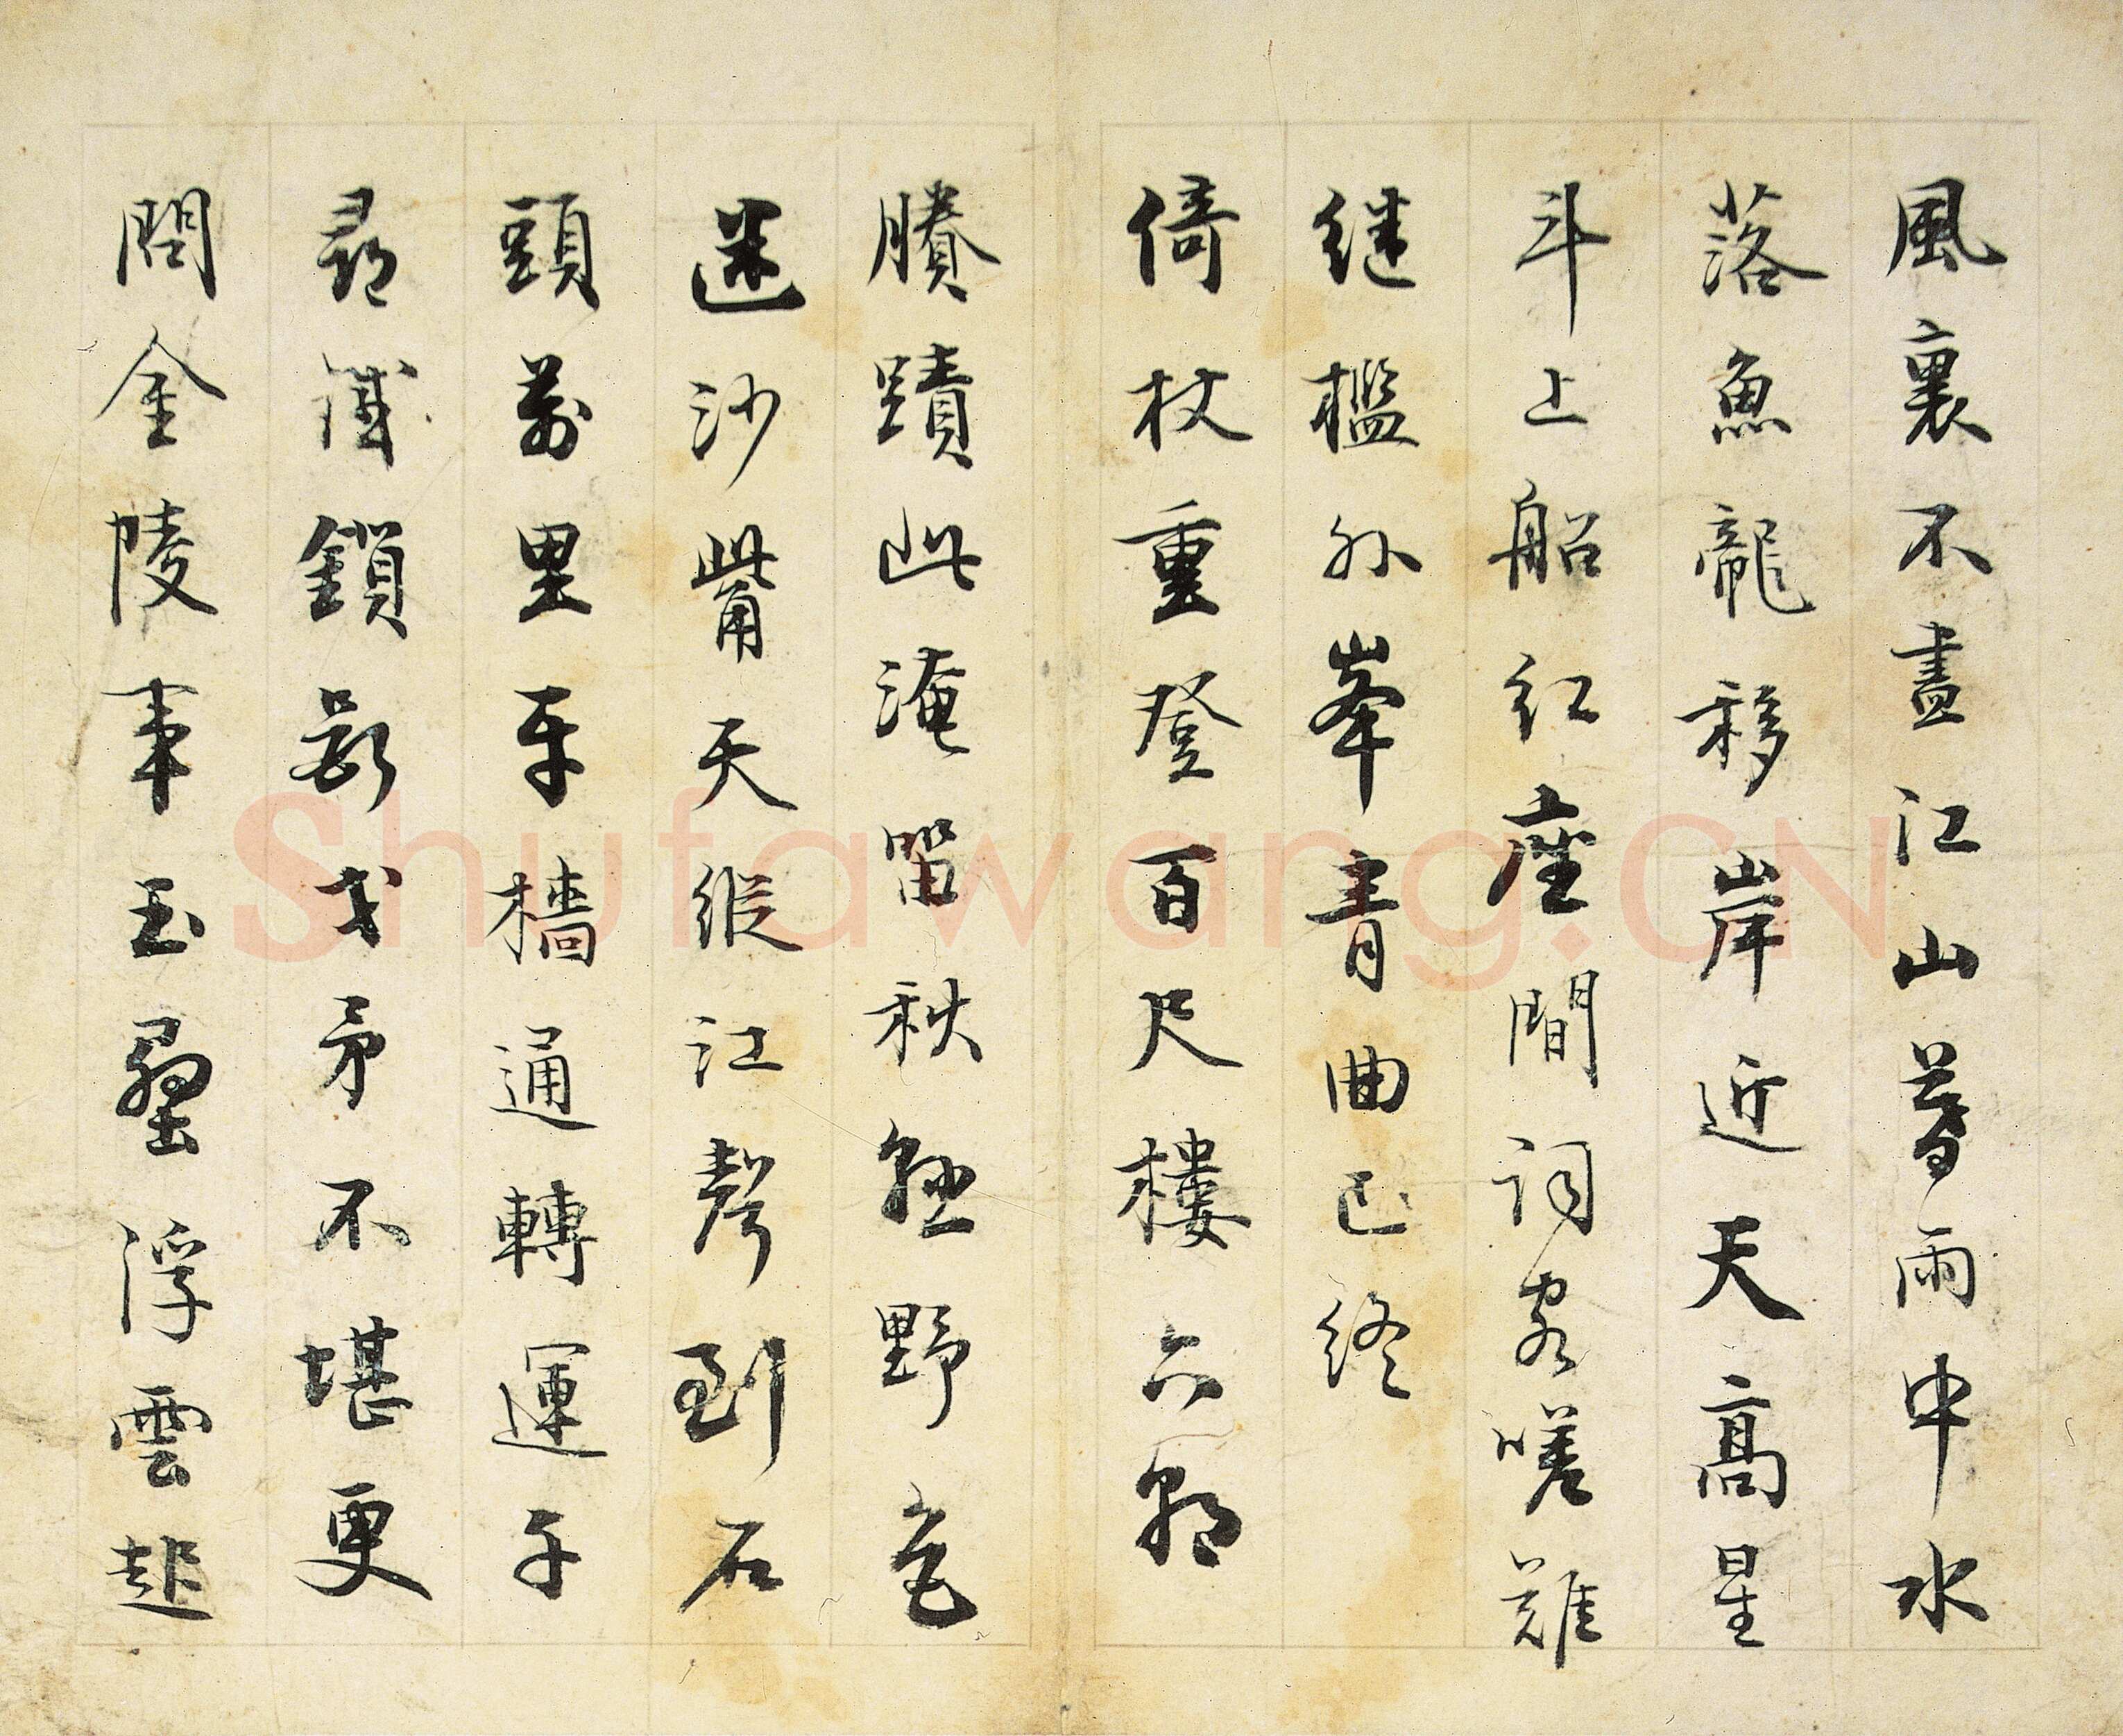 風裏不盡江山暮雨中水
落魚龍移岸近天高星
斗上船紅座間詞客嗟難
继檻外峯青曲已終
倚杖重登百尺樓六朝
賸蹟此淹留秋懸野色
迷沙觜天縱江聲到石
頭萬里牙檣通轉運千
尋鐵鎖斷戈矛不堪更
問金陵事玉壘浮雲
Shufawang.CN